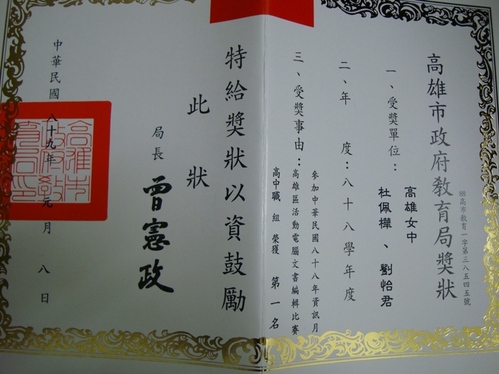 高雄市政府教育局獎狀
88高市教育一字第三八五四五號
一、受獎單位：高雄女中
杜佩樺、劉怡君
二、年 度：八十八學年度
三、受獎事由：參加中華民國八十八年資訊月
高雄區活動電腦文書編輯比賽
高中職 組 榮獲 第一名
特給獎狀以資鼓勵
此 狀
局長 曾憲政
中華民國 八十九年 元 月 八 日